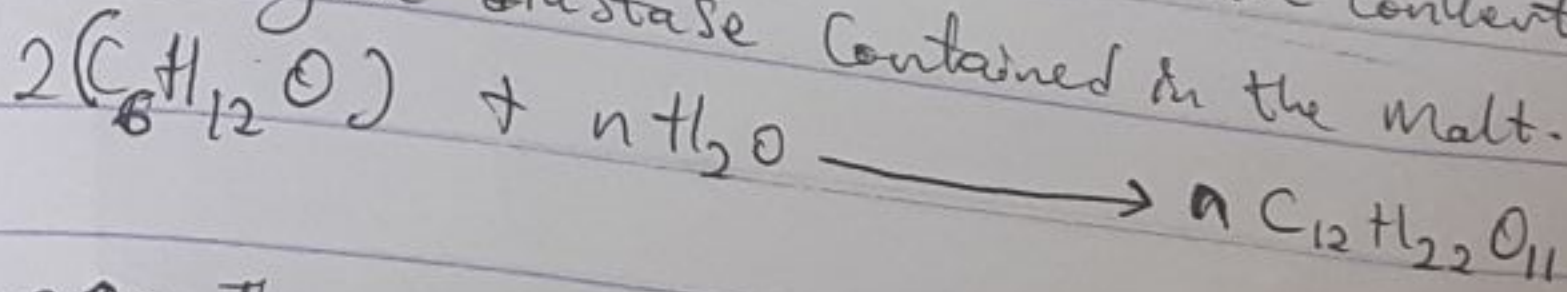 Contained in the malt.
2(C₆H₁₂O) + nH₂O ⟶ n C₁₂H₂₂O₁₁